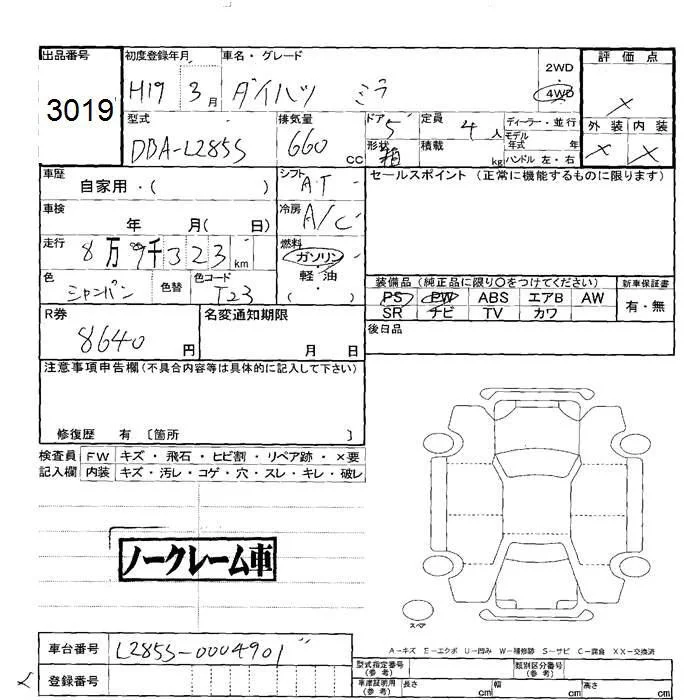 出品番号 初度登録年月 車名・グレード 評価点
3019 H19 3月 ダイハツ ミラ 2WD 4WD ×
型式 排気量 ドア 定員 ディーラー・並行 外装 内装
DBA-L285S 660cc 5 4人 モデル年式 年 × ×
形状 箱 積載 kg ハンドル 左・右
車歴 自家用・( ) シフト AT セールスポイント (正常に機能するものに限ります)
車検 年 月( 日) 冷房 A/C
走行 8万9千323km 燃料 ガソリン
色 シャンパン 色替 色コード T23 軽油 ( )
装備品 (純正品に限り○をつけてください) 新車保証書
PS PW ABS エアB AW 有・無
SR ナビ TV カワ
R券 8640円 名変通知期限 月 日 後日品
注意事項申告欄(不具合内容等は具体的に記入して下さい)
修復歴 有 〔箇所 〕
検査員 FW キズ・飛石・ヒビ割・リペア跡・×要
記入欄 内装 キズ・汚レ・コゲ・穴・スレ・キレ・破レ
ノークレーム車
スペア
A-キズ E-エクボ U-凹み W-補修跡 S-サビ C-腐食 XX-交換済
車台番号 L285S-0004901
登録番号
型式指定番号(参考) 類別区分番号(参考)
車庫証明用(参考) 長さ cm 幅 cm 高さ cm